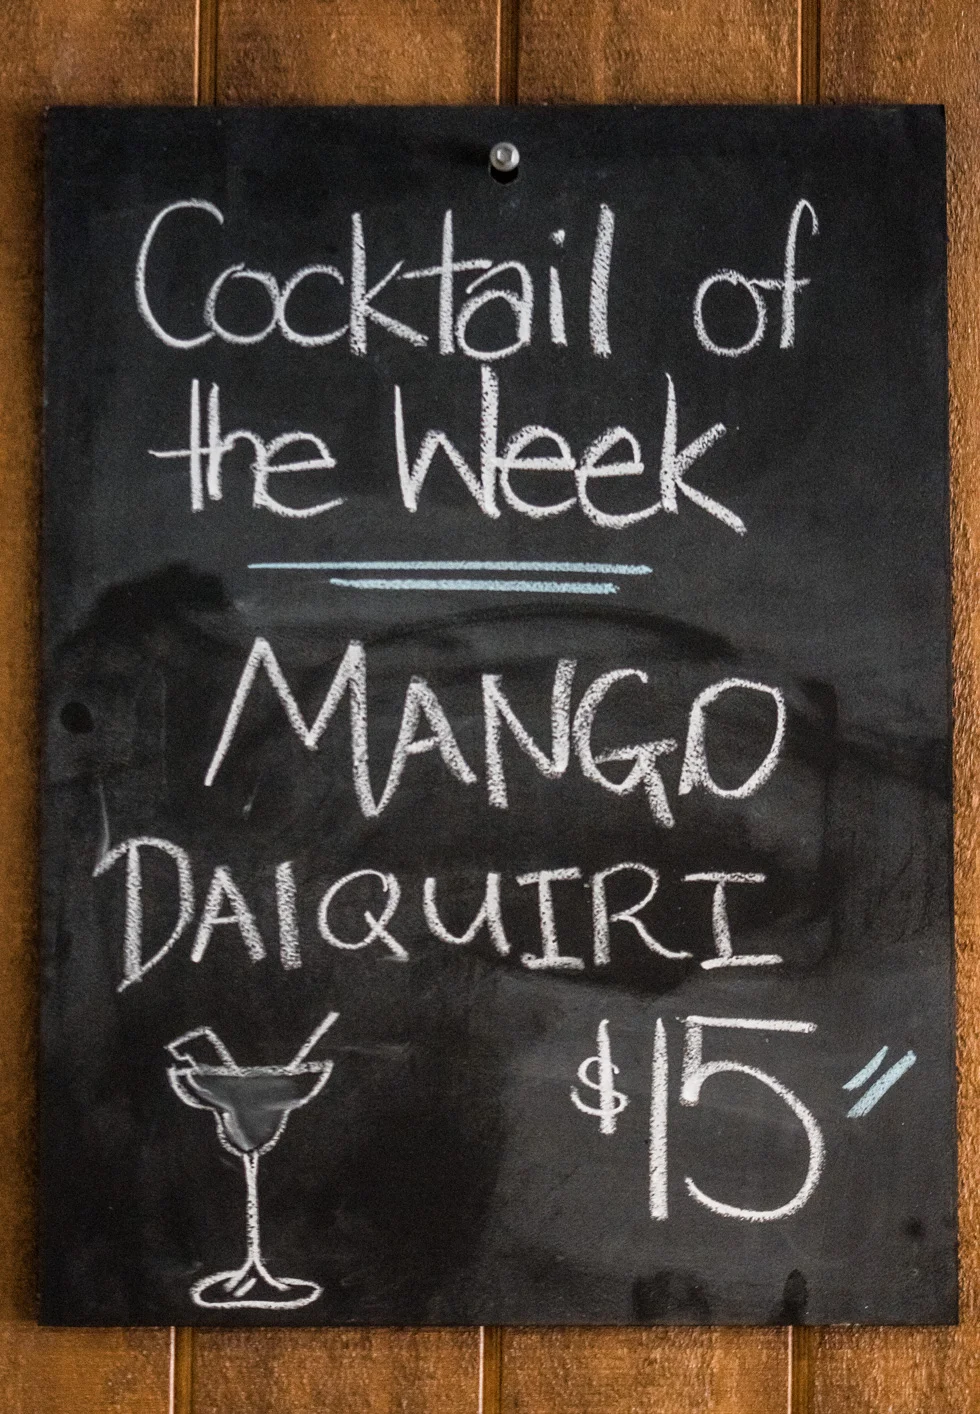 Cocktail of
the Week
MANGO
DAIQUIRI
$15